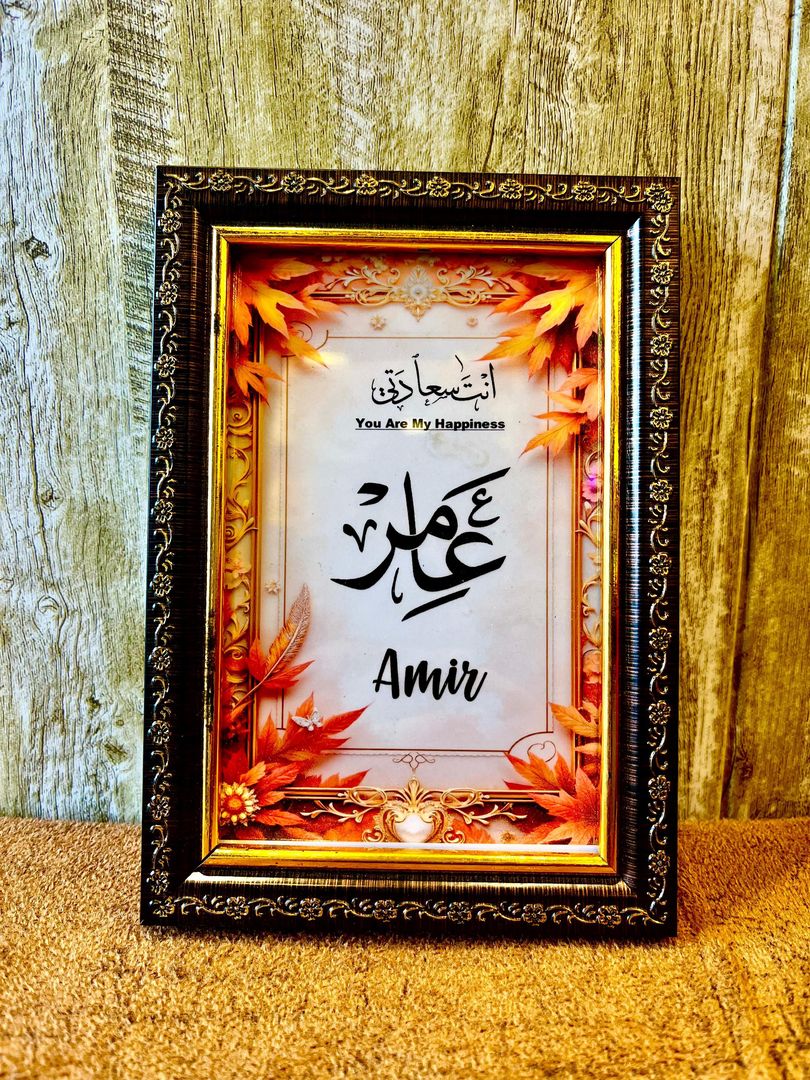 انْتَ سعادَتي
You Are My Happiness
عامر
Amir